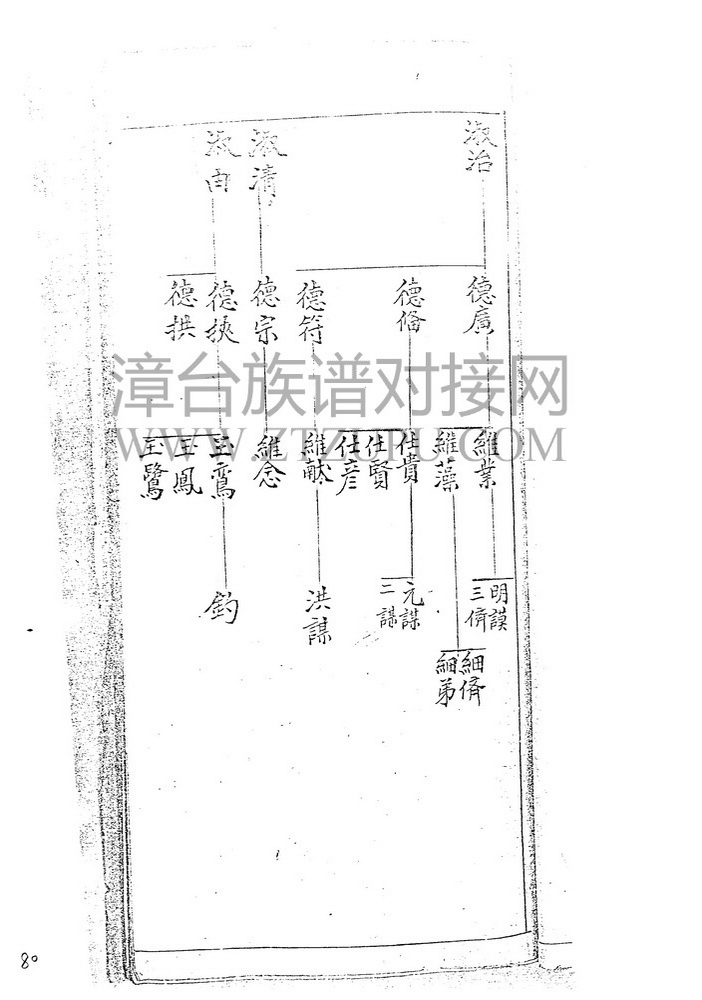 淑治
淑清
淑由
德廣
德脩
德符
德宗
德挾
德拱
維業
維藻
仕貴
仕賢
仕彦
維献
維念
玉鸞
玉鳳
玉鷺
明謨
三脩
元謀
二謀
洪謀
釣
細脩
細弟
漳台族谱对接网
WWW.ZTZUPU.COM
80